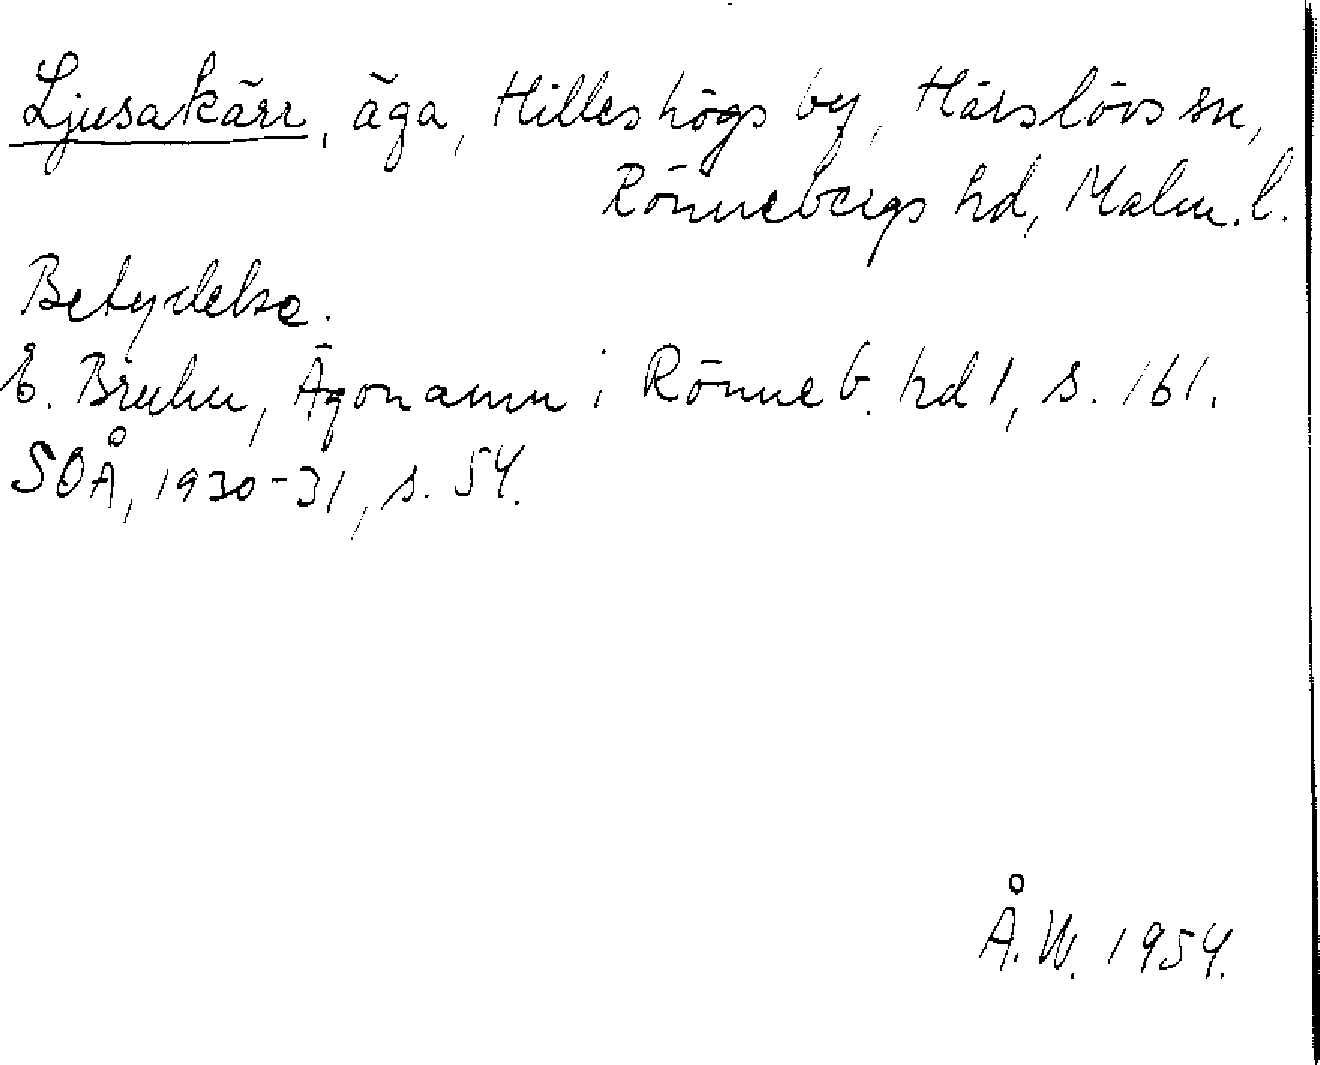 Ljusakärr, äga, Hilleshögs by, Härslövs sn,
Rönnebergs hd, Malm. l.
Betydelse.
E. Bruhn, Ägonamn i Rönneb. hd 1, s. 161.
SOÅ, 1930-31, s. 54.
Å.W. 1954.